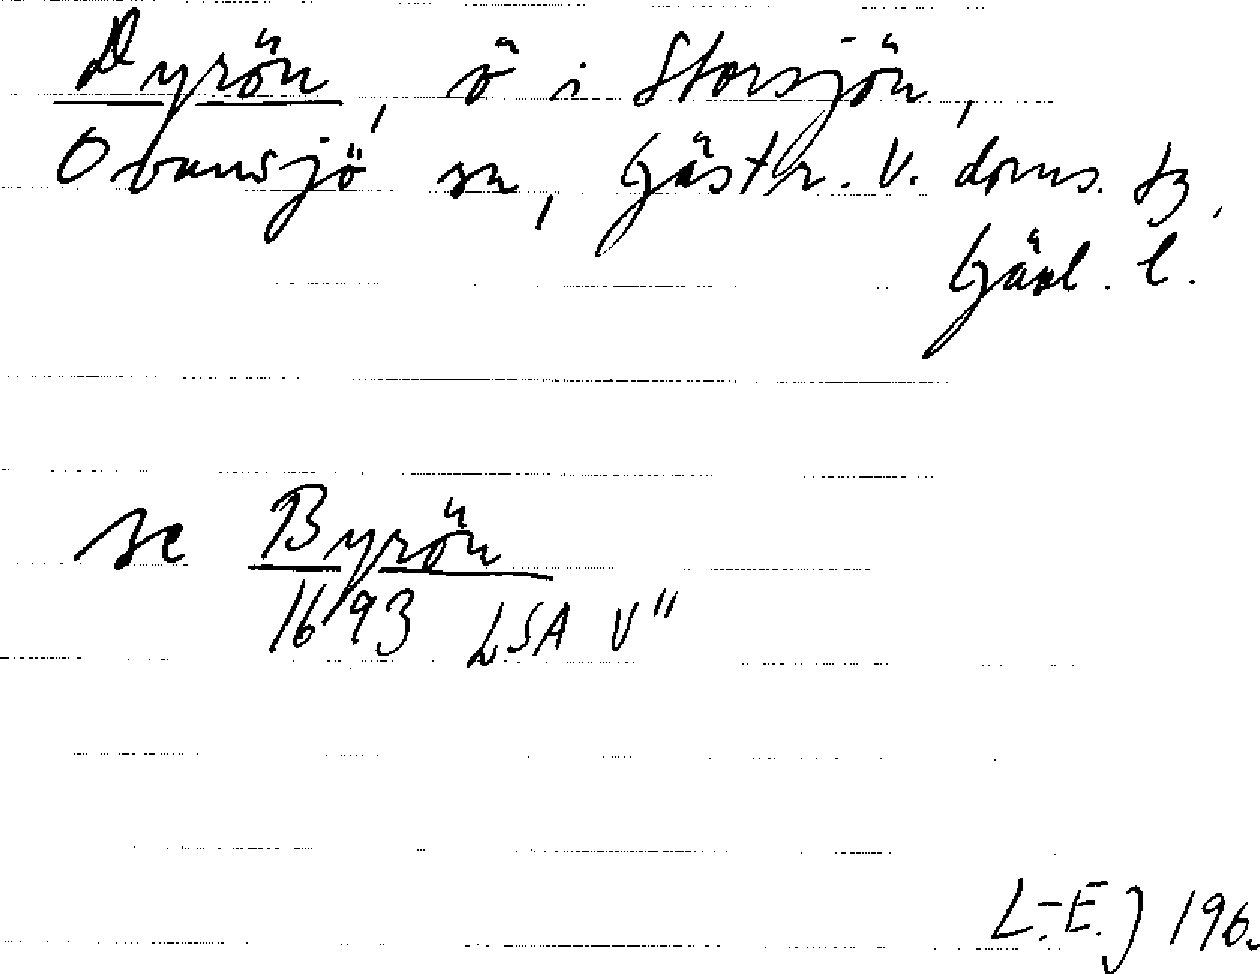 Dyrön, ö i Storsjön,
Ovansjö sn, Gästr. V. doms. tg,
Gävl. l.
se Byrön
1693 LSA V"
L-E. J 196